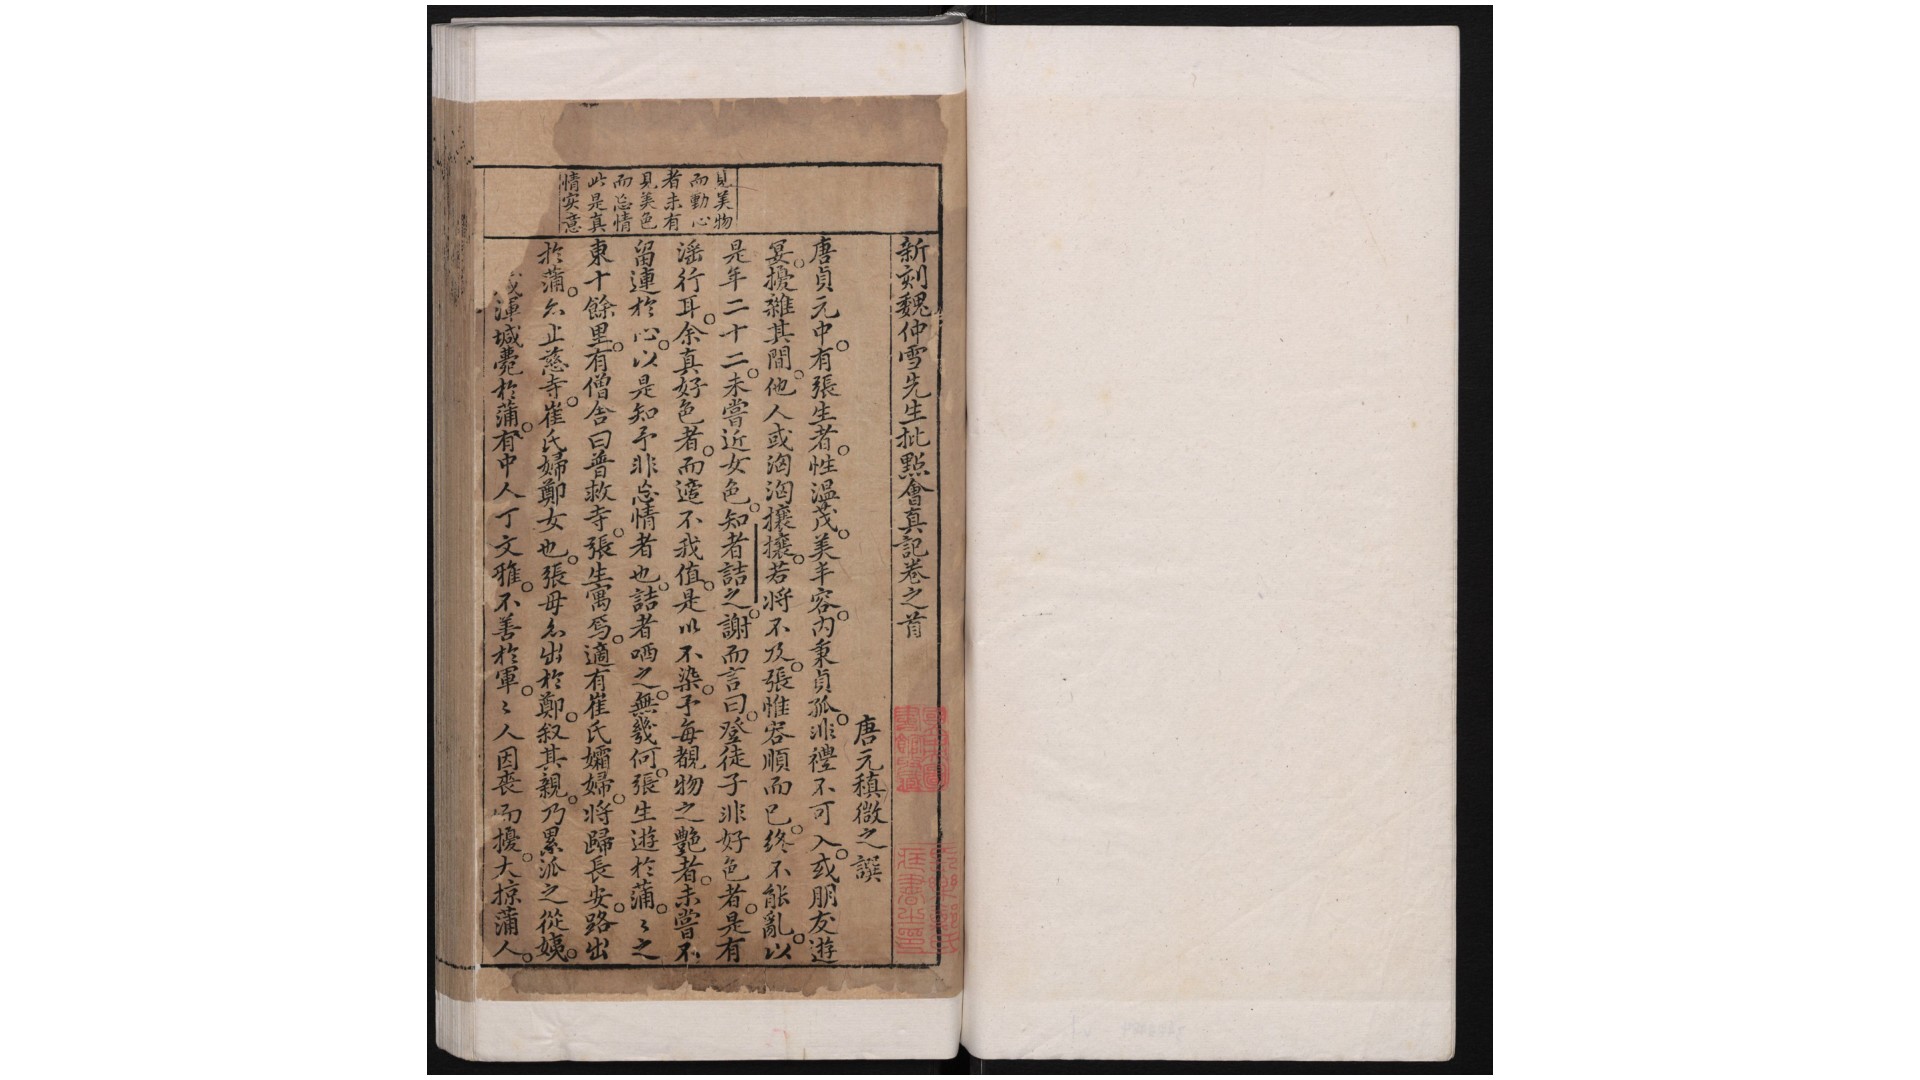 新刻魏仲雪先生批點會真記卷之首
唐元稹微之譔
唐貞元中有張生者性温茂美丰容内秉貞孤非禮不可入或朋友遊
宴擾雜其間他人或洶洶攘攘若将不及張惟容順而已終不能亂以
是年二十二未嘗近女色知者詰之謝而言曰登徒子非好色者是有
滛行耳余真好色者而適不我值是以不染予每覩物之艶者未嘗不
留連於心以是知予非忘情者也詰者哂之無幾何張生遊於蒲〻之
東十餘里有僧舍曰普救寺張生寓焉適有崔氏孀婦将歸長安路出
於蒲亦止慈寺崔氏婦鄭女也張母亦出於鄭叙其親乃累派之從姨
渾瑊薨於蒲有中人丁文雅不善於軍〻人因丧而擾大掠蒲人
見美物
而動心
者未有
見美色
而忘情
此是真
情实意